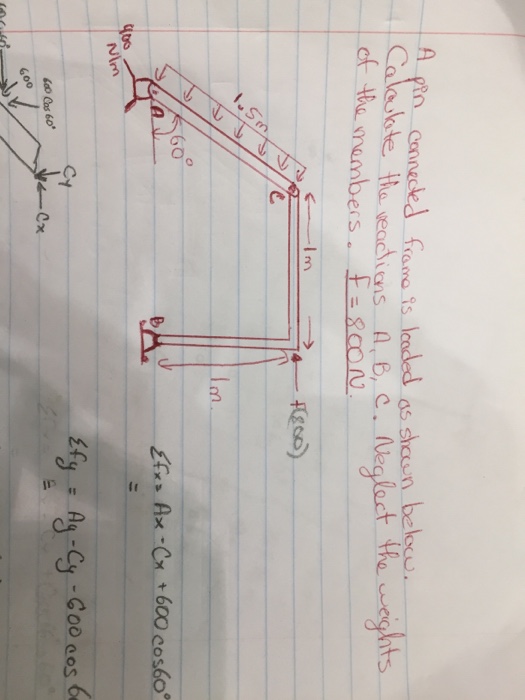 A pin connected frame is loaded as shown below.
Calculate the reactions A, B, C. Neglect the weights
of the members. f = 800N.
1m
F(800)
1.5m
C
60°
A
400
N/m
B
1m.
Σfx = Ax - Cx + 600 cos60°
=
Σfy = Ay - Cy - 600 cos
=
Cy
Cx
600 cos 60°
60°